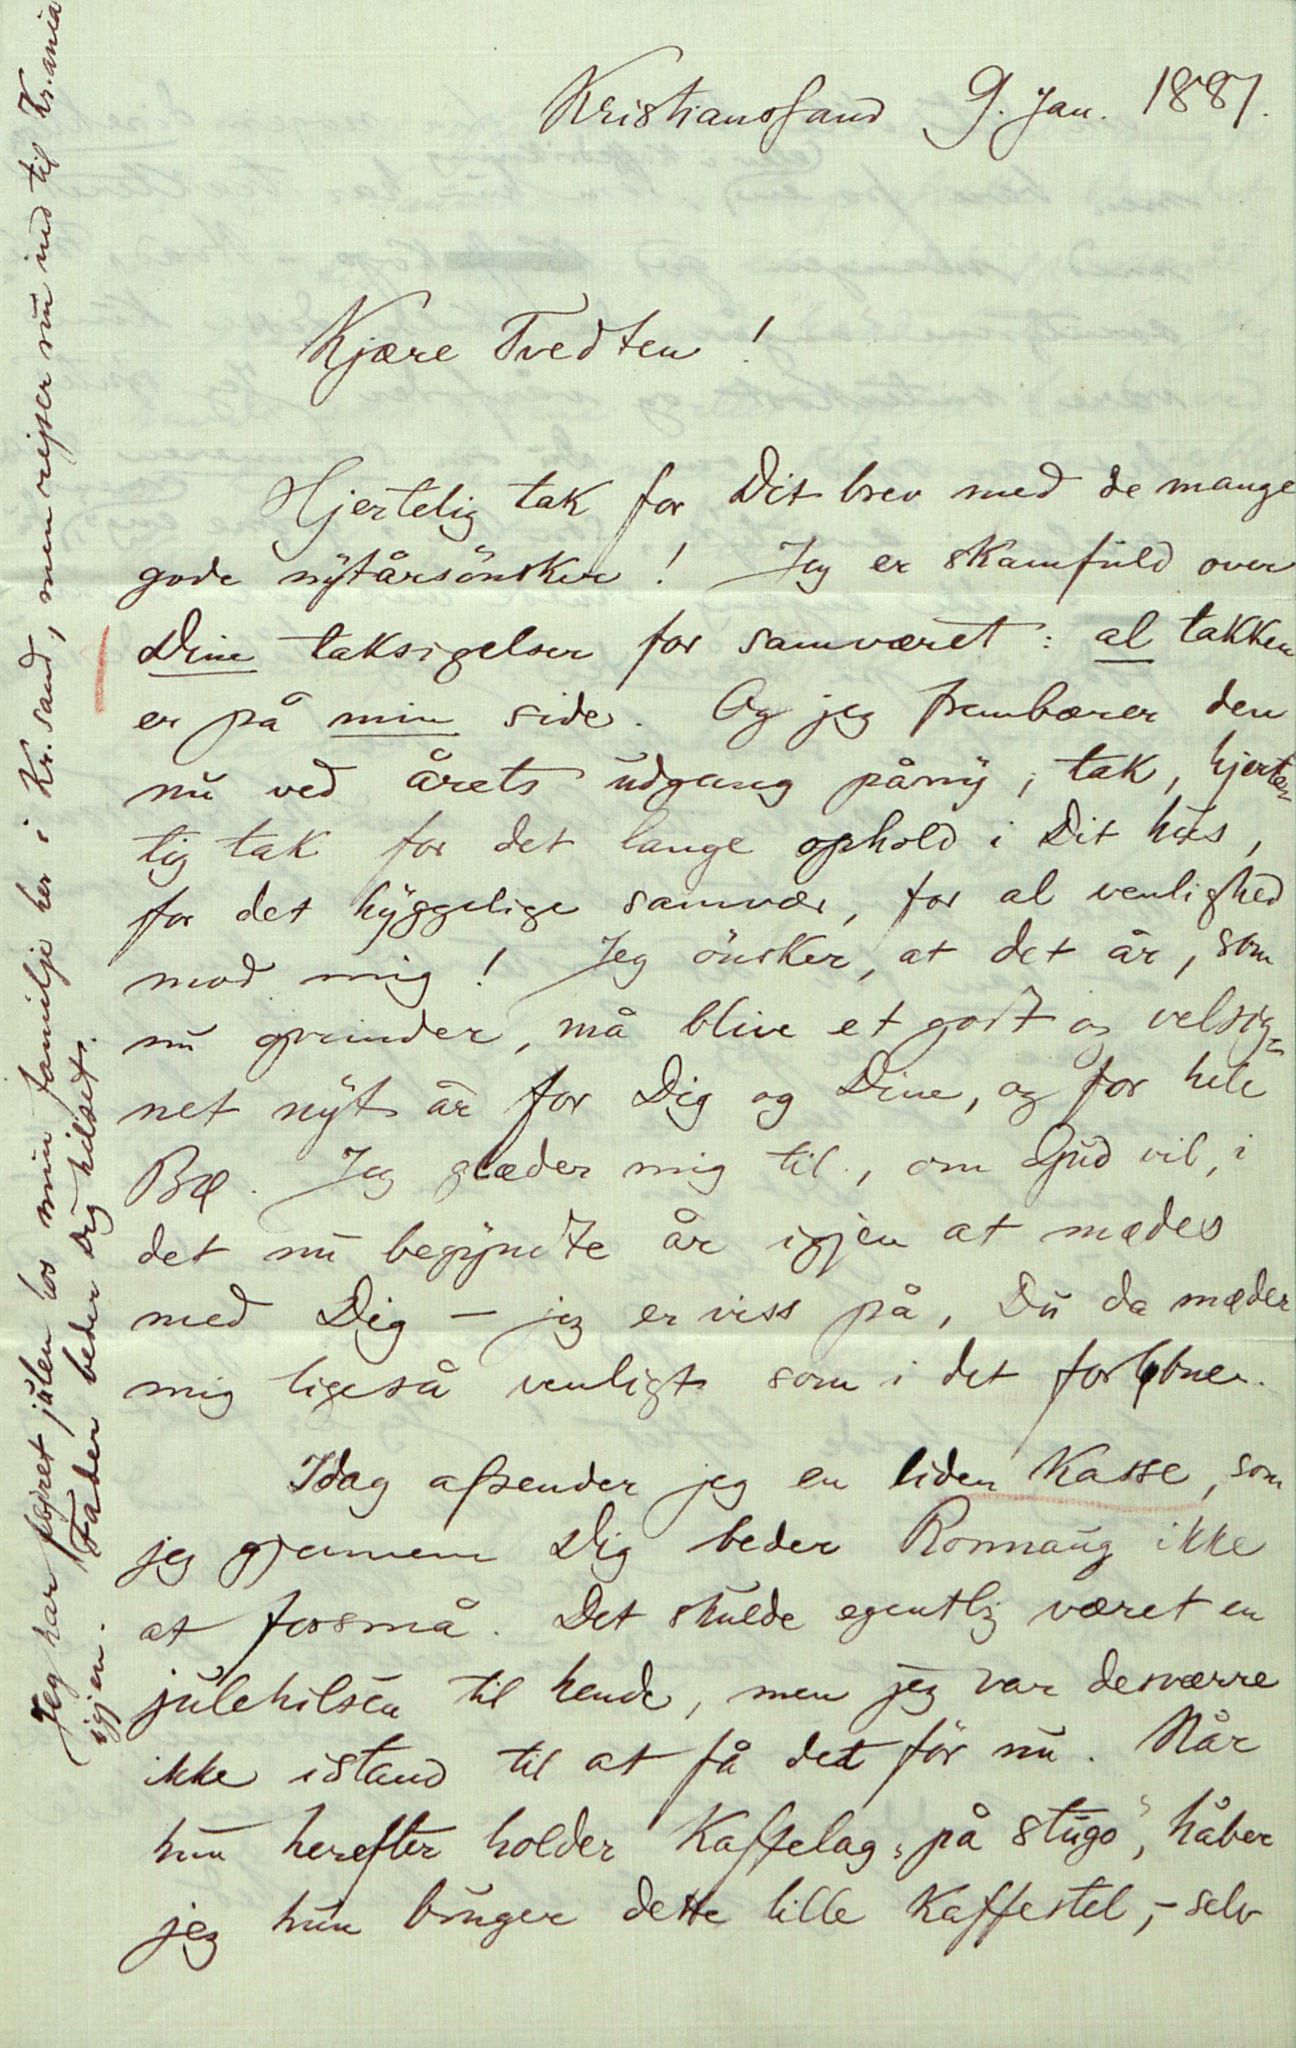 Kristianssand 9. jan. 1887.
Kjære Tvedten!
Hjertelig tak for Dit brev med de mange
gode nytårsönsker! Jeg er skamfuld over
Dine taksigelser for samværet: al takken
er på min side. Og jeg frembærer den
nu ved årets udgang påny; tak, hjerte-
lig tak for det lange ophold i Dit hus,
for det hyggelige samvær, for al venlighed
mod mig! Jeg önsker, at det år, som
nu oprinder, må blive et godt og velsig=
net nyt år for Dig og Dine, og for hele
Bø. Jeg glæder mig til, om Gud vil, i
det nu begyndte år igjen at mødes
med Dig – jeg er viss på, Du da møder
mig ligeså venligt som i det forløbne.
Idag afsender jeg en liden Kasse, som
jeg gjennem Dig beder Ronnaug ikke
at forsmå. Det skulde egentlig været en
julehilsen til hende, men jeg var desværre
ikke istand til at få det för nu. Når
hun herefter holder Kaffelag „på stugo", håber
jeg hun bruger dette lille Kaffestel, – selv
Jeg har fejret julen hos min familje her i Kr.sand, men rejser nu ind til Kr.ania
igjen. Fader beder Dig hilset.